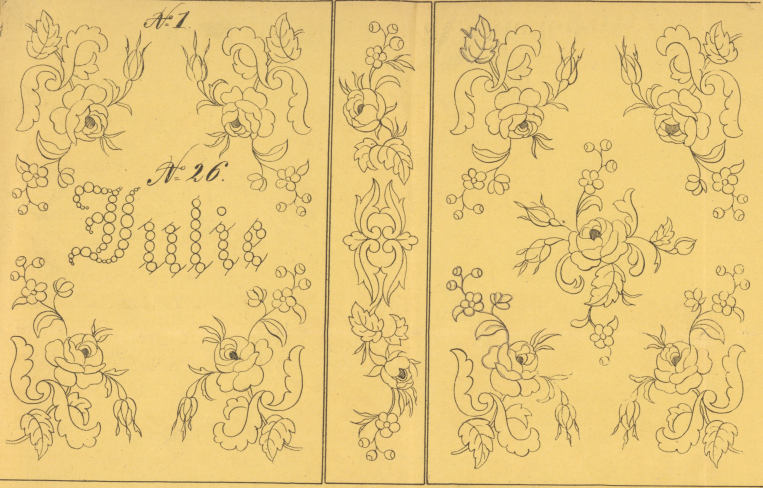 № 1.
№ 26.
Julie